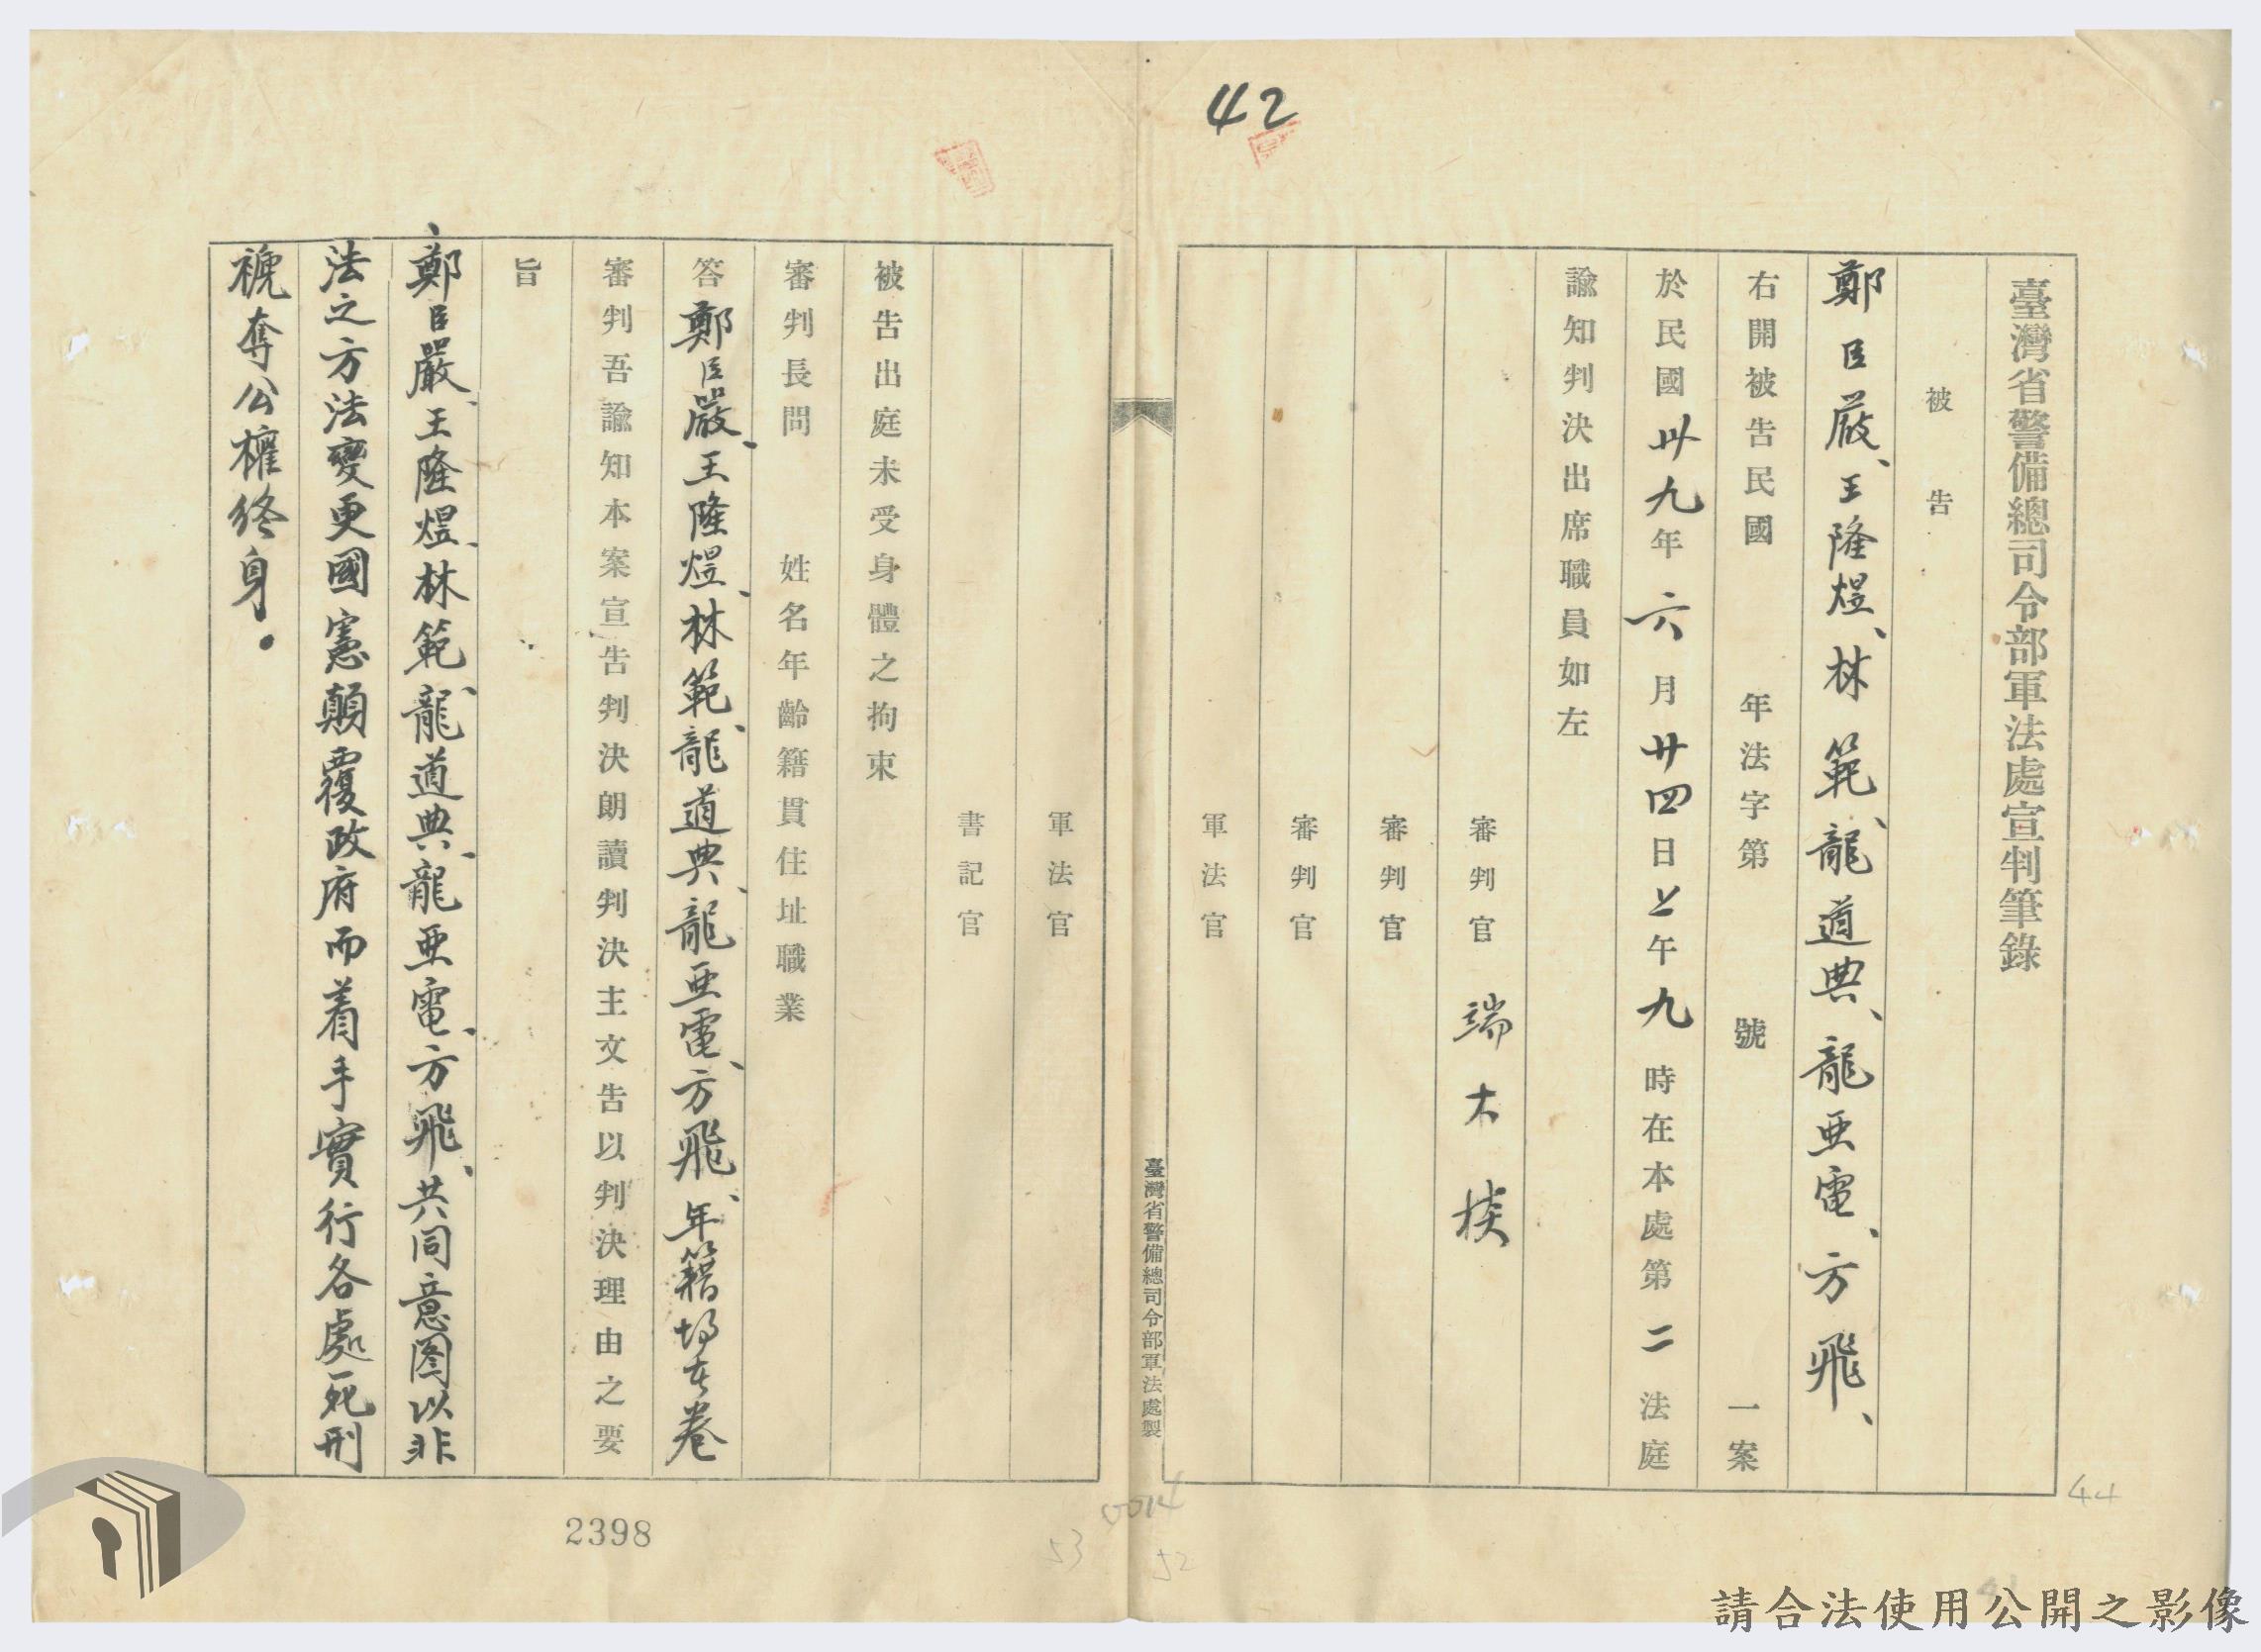 42
臺灣省警備總司令部軍法處宣判筆錄
被告
鄭臣嚴、王隆煜、林範、龍道典、龍亜電、方飛、
右開被告民國 年法字第 號 一案
於民國卅九年六月廿四日上午九時在本處第二法庭
諭知判決出席職員如左
審判官 端木棪
審判官
審判官
軍法官
臺灣省警備總司令部軍法處製
軍法官
書記官
被告出庭未受身體之拘束
審判長問 姓名年齡籍貫住址職業
答鄭臣嚴、王隆煜、林範、龍道典、龍亜電、方飛、年籍均在卷
審判吾諭知本案宣告判決朗讀判決主文告以判決理由之要
旨
鄭臣嚴、王隆煜、林範、龍道典、龍亜電、方飛、共同意图以非
法之方法變更國憲顛覆政府而着手實行各處死刑
褫奪公權終身.
2398
53
52
44
請合法使用公開之影像